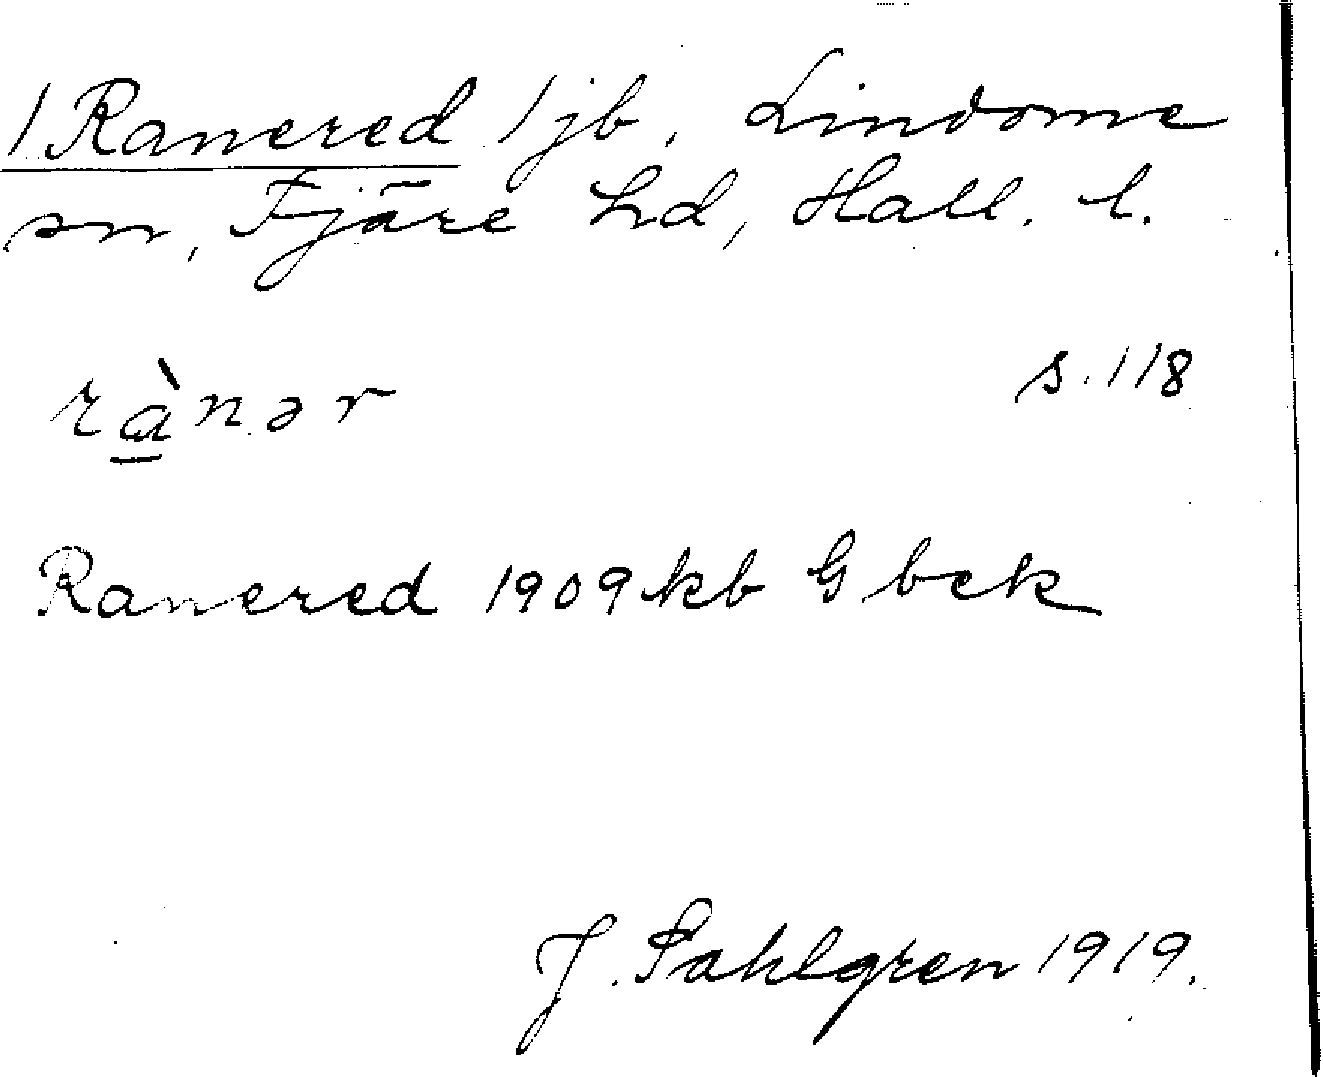 1 Ranered 1 jb, Lindome
sn, Fjäre hd, Hall. l.
s. 118
rànər
Ranered 1909 kb G bek
J. Sahlgren 1919.